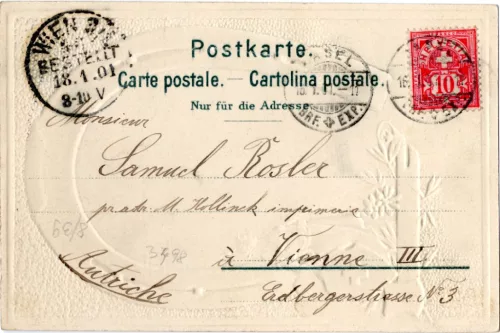 WIEN 3/3
BESTELLT
18.1.01
8-10 V
Postkarte.
Carte postale. — Cartolina postale.
Nur für die Adresse
BRF. EXP.
HELVETIA
10
Monsieur
Samuel Rosler
pr. adr. M. Hollinek imprimerie
à Vienne III
Autriche
Erdbergerstrasse No 3